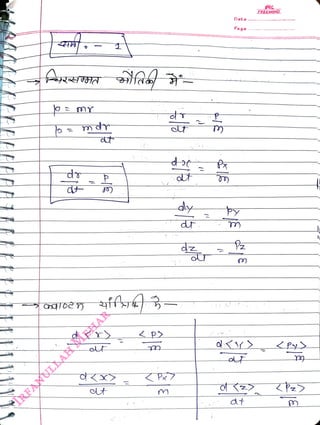 Date
Page
समी. - 1
→ चिरसम्मत भौतिकी में :-
p = mv
p = m dr/dt
dr/dt = p/m
dr/dt = P/m
dx/dt = Px/m
dy/dt = Py/m
dz/dt = Pz/m
→ क्वाण्टम यांत्रिकी में —
d<r>/dt = <P>/m
d<x>/dt = <Px>/m
d<y>/dt = <Py>/m
d<z>/dt = <Pz>/m
IRFANULLAH MEHAR